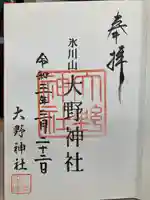 奉拝
氷川山
大野神社
令和三年三月二十三日
大野神社